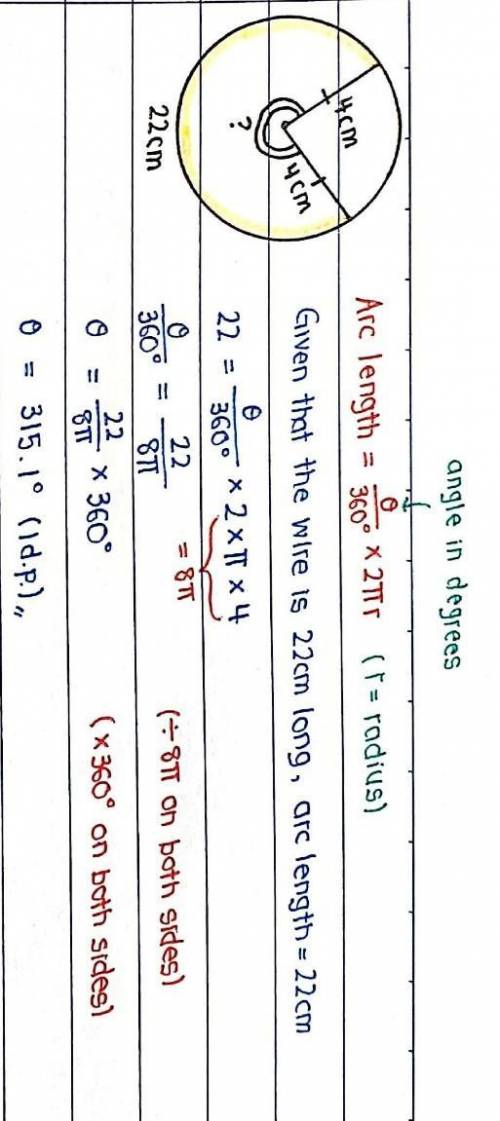 angle in degrees
Arc length = θ/360° × 2πr (r = radius)
Given that the wire is 22cm long, arc length = 22cm
22 = θ/360° × 2 × π × 4
= 8π
θ/360° = 22/8π (÷ 8π on both sides)
θ = 22/8π × 360° (× 360° on both sides)
θ = 315.1° (1 d.p.),,
4cm
4cm
?
22cm